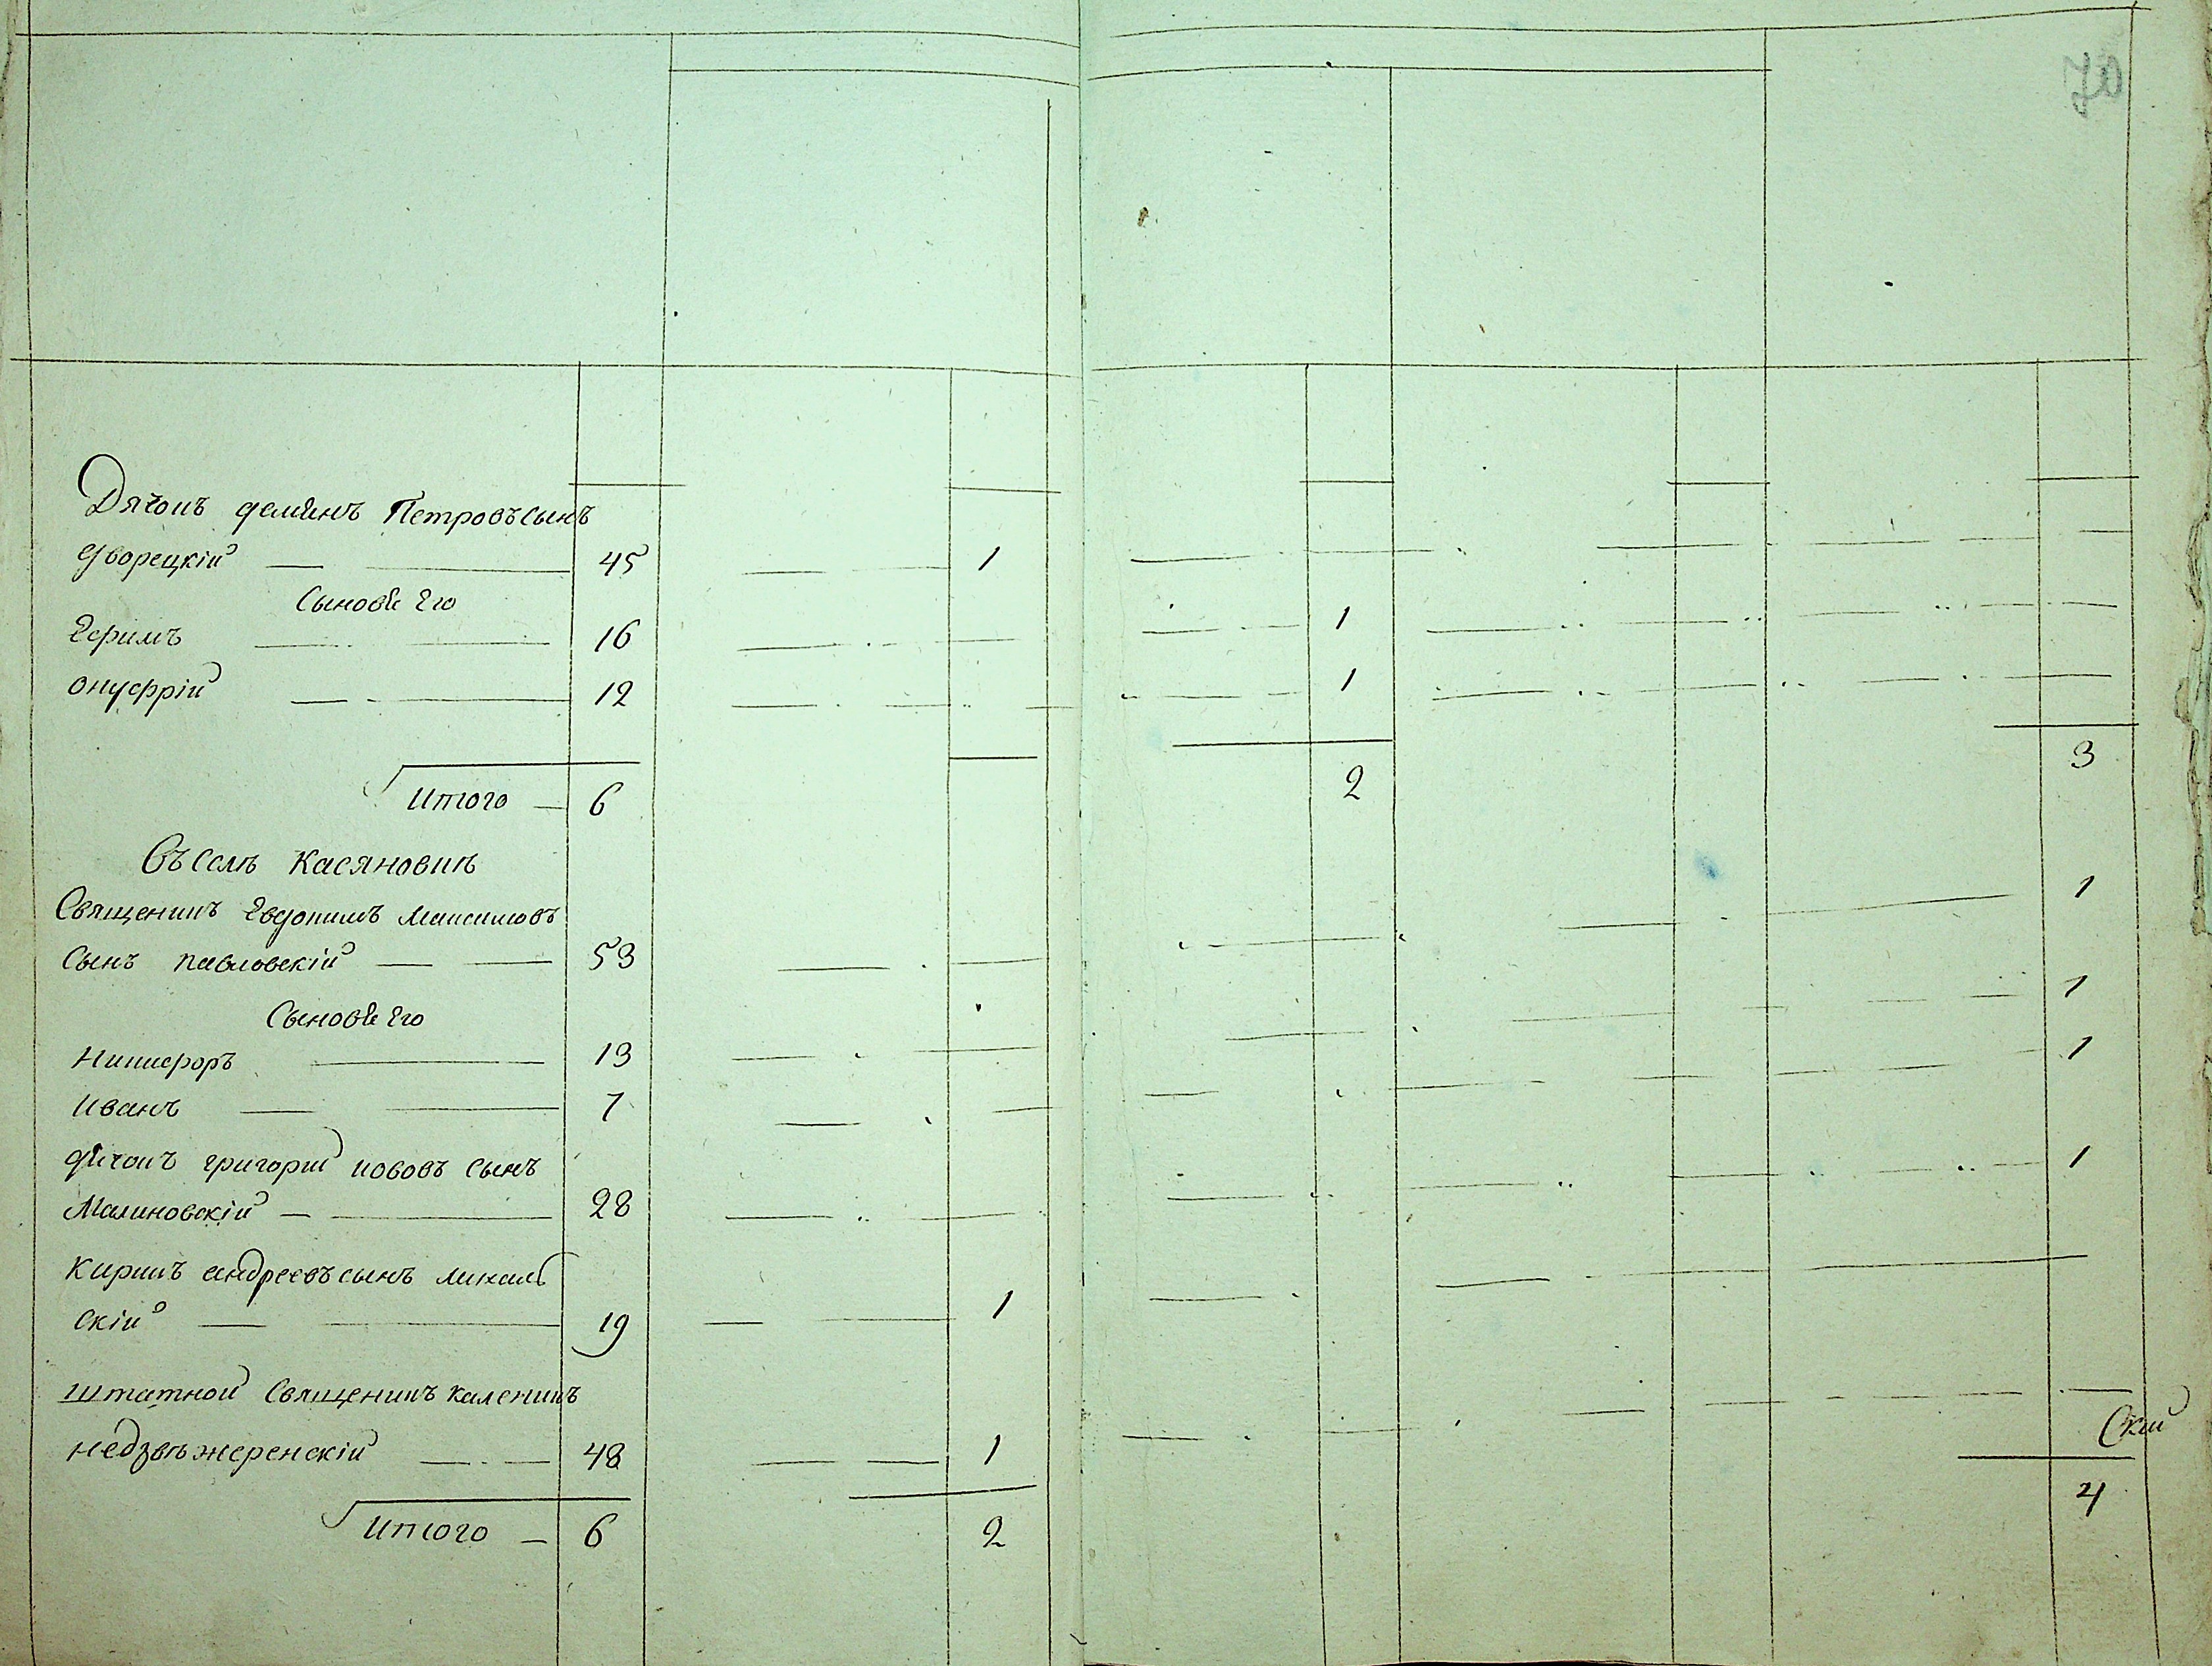 70
Дячокъ демянъ Петровъ сынъ
дворецкій — — 45 — — 1
Сыновѣ Его
Ефимъ — — 16 — — 1
онуфрій — — 12 — — 1
Итого — 6 2 3
Въ селѣ Касяновкѣ
Священикъ Евдокимъ Максимовъ
Сынъ павловскій — — 53 — — 1
Сыновѣ Его
Никифоръ — 13 — — 1
Иванъ — — 7 — — 1
дячокъ григорій иововъ сынъ
Малиновскій — — 28 — — 1
Кирикъ андреевъ сынъ Лихав
скій — — 19 — — 1
штатной Священикъ каленикъ
недзвѣжеренскій — — 48 — — 1
Итого — 6 2 4
Скій